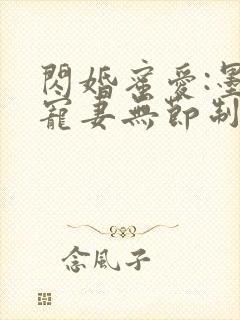 閃婚蜜愛:墨
寵妻無節制
念風子